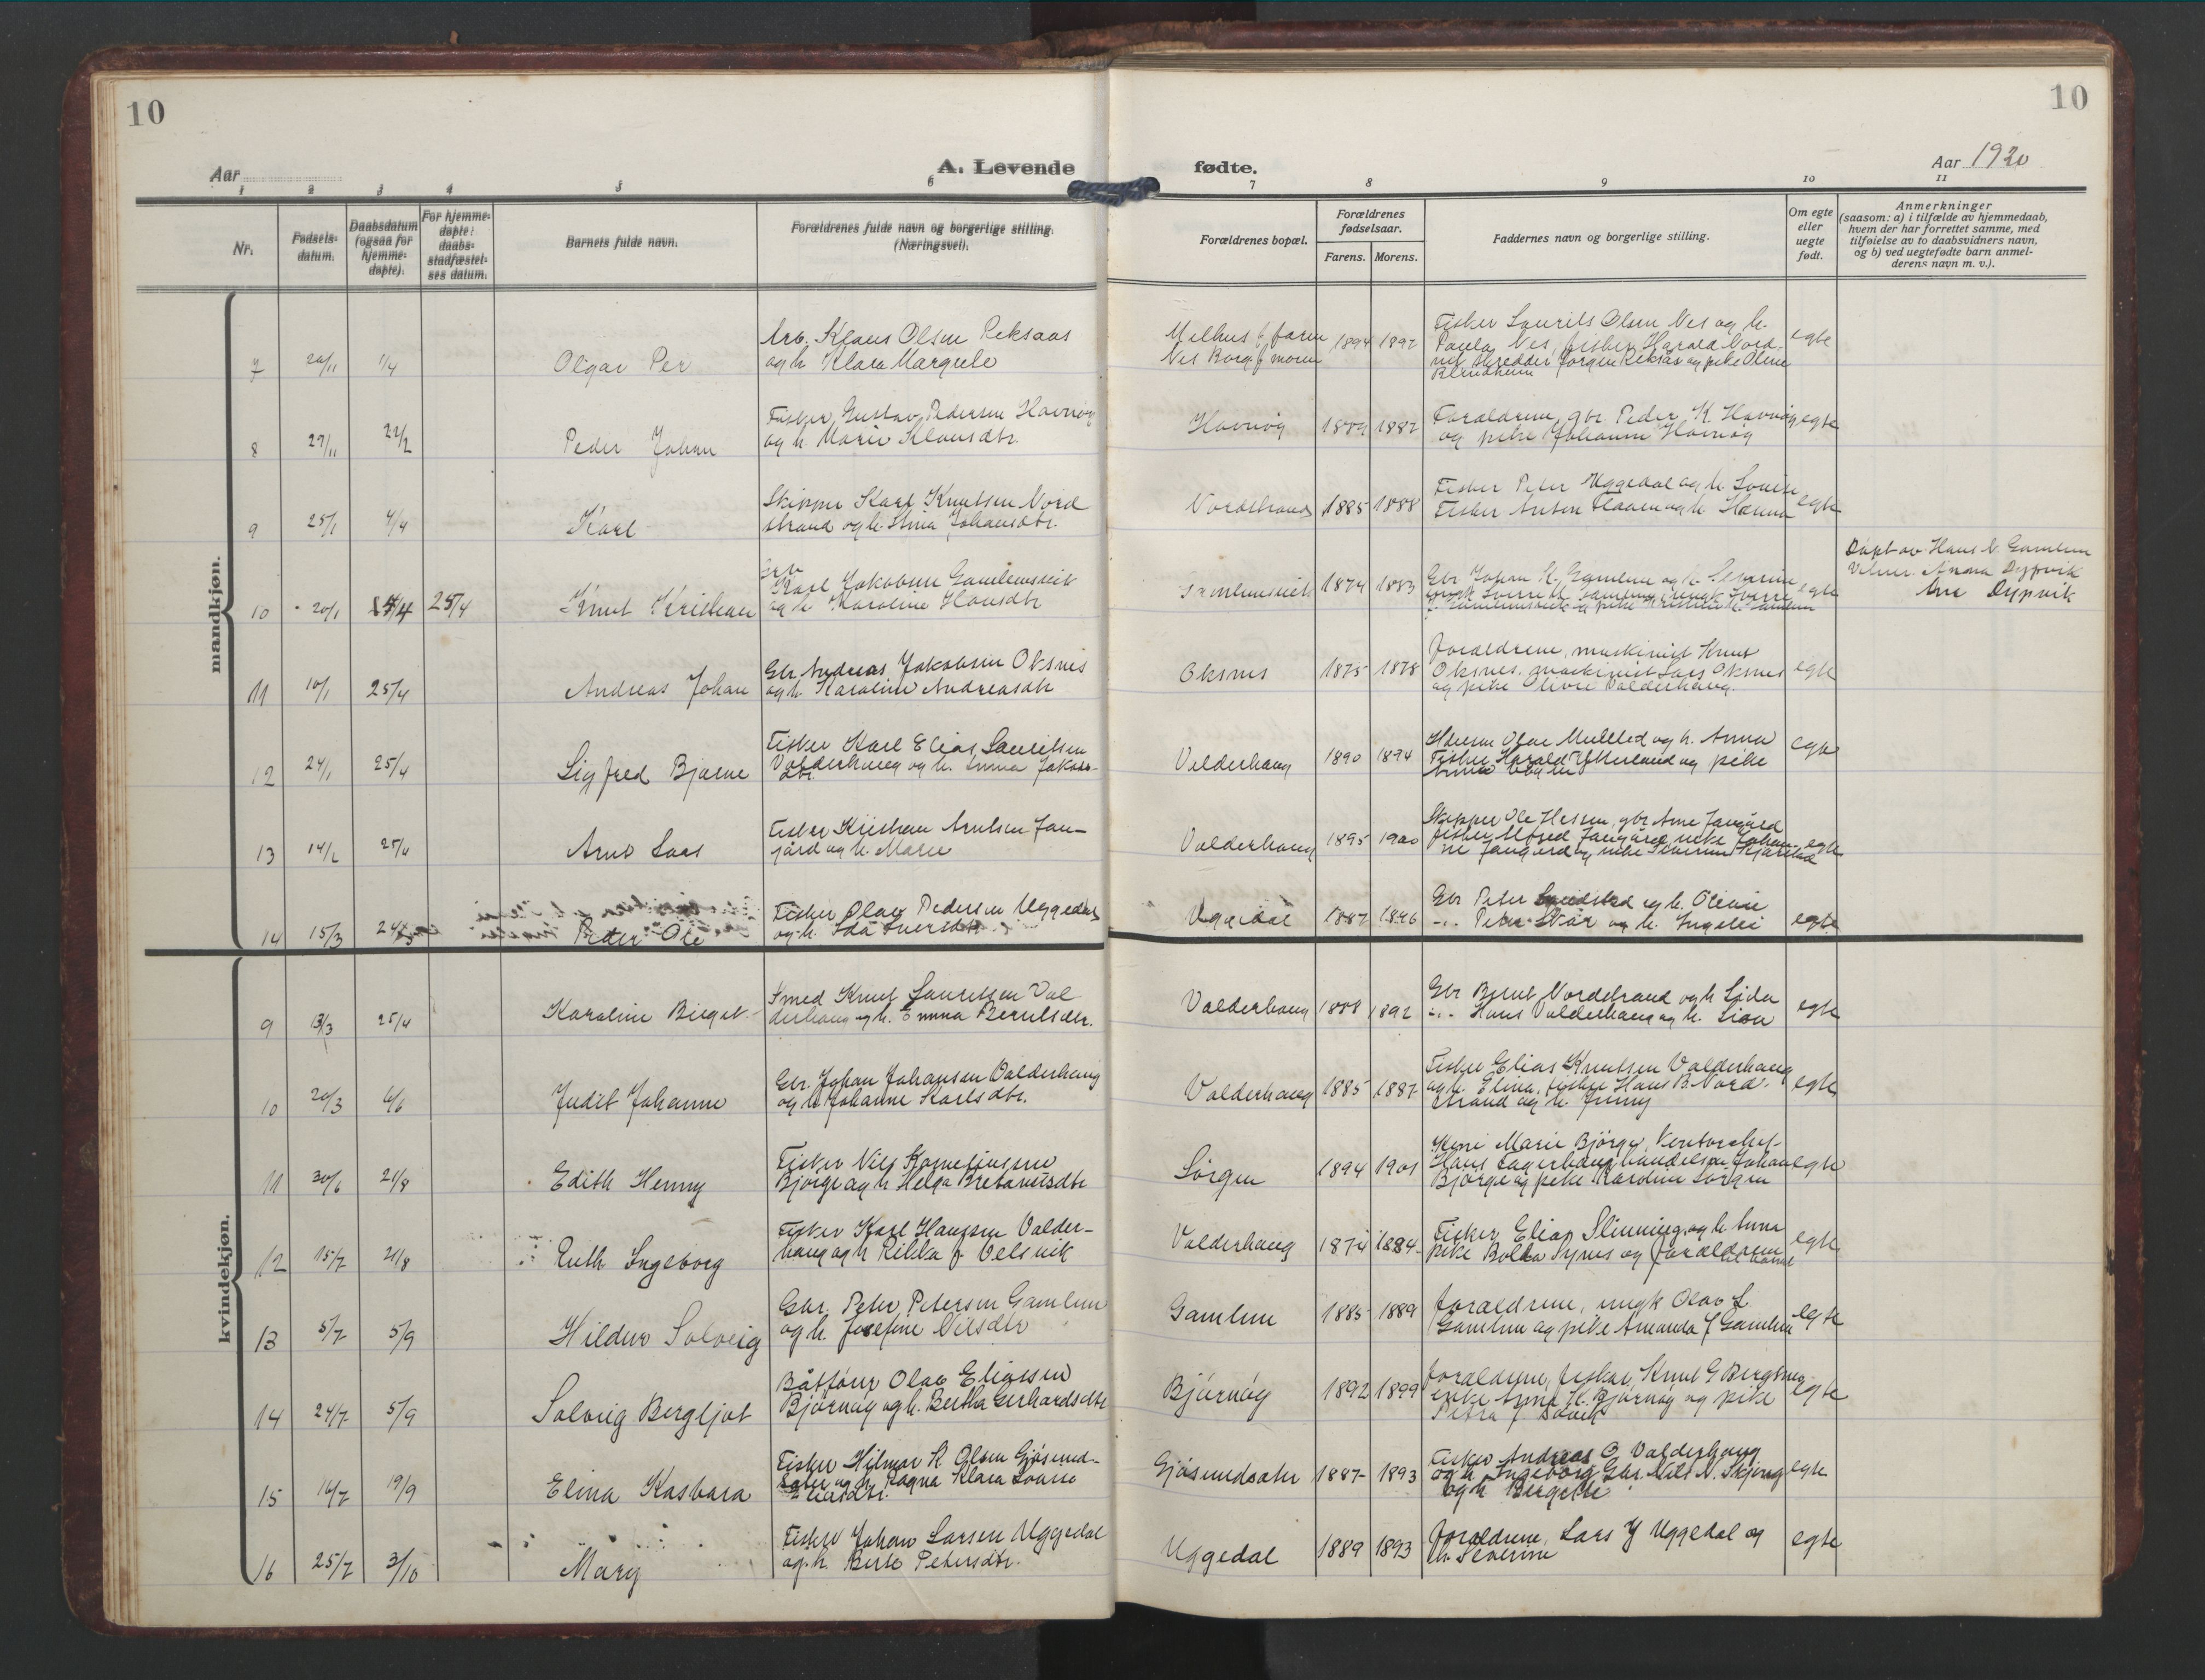 10
10
Aar
A. Levende
fødte.
Aar 1920
1 2 3 4 5 6 7 8 9 10 11
Nr.
Fødsels-
datum.
Daabsdatum
(ogsaa for
hjemme-
døpte).
For hjemme-
døpte:
daabs-
stadfæstel-
ses datum.
Barnets fulde navn.
Forældrenes fulde navn og borgerlige stilling.
(Næringsvei).
Forældrenes bopæl.
Forældrenes
fødselsaar.
Farens. Morens.
Faddernes navn og borgerlige stilling.
Om egte
eller
uegte
født.
Anmerkninger
(saasom: a) i tilfælde av hjemmedaab,
hvem der har forrettet samme, med
tilføielse av to daabsvidners navn,
og b) ved uegtefødte barn anmel-
derens navn m. v.).
mandkjøn.
7 20/11 1/4 Olgar Per
Arb. Klaus Olsen Reksaas
og h. Klara Margrete
Melhus f. faren
Nes Borg. f. moren
1894 1892
Fisker Laurits Olsen Nes og h.
Paula Nes, fisker Harald Nord-
nes skredder Jørgen Reksås og pike Oline
Blindheim
egte
8 27/11 22/2 Peder Johan
Fisker Gustav Pedersen Havnøy
og h. Marie Klausdtr
Havnøy 1889 1882
Foraldrene, gbr. Peder K. Havnøy
og pike Johanne Havnøy
egte
9 25/1 4/4 Karl
Skipper Karl Knutsen Nord
strand og h. Stina Johansdtr.
Nordstrand 1885 1888
Fisker Peter Uggedal og h. Louise
Fisker Anton og h. Hanna
egte
10 20/1 5/4 25/4 Knut Kristian
Gbr
Karl Jakobsen Gamlemsveit
og h. Karoline Hansdtr
Gamlemsveit 1874 1883
Gbr Johan K. Gamlem og h. Severine
egte
Døpt av Hans N. Gamlem
Vitner. Anna Dypvik
Ane Dypvik
11 10/1 25/4 Andreas Johan
Gbr Andreas Jakobsen Oksnes
og h. Karoline Andreasdtr
Oksnes 1875 1878
Foraldrene, maskinist Knut
Oksnes, maskinist Lars Oksnes
og pike Olivie Valderhaug.
egte
12 24/1 25/4 Sigfred Bjarne
Fisker Karl Elias Lauritsen
Valderhaug og h. Anna Jakobs-
dtr.
Valderhaug 1890 1894
Olav Mulelid og h. Anna
Fisker Harald Ytterland og pike
egte
13 14/2 25/4 Arne Lars
Fisker Kristian Arntsen Jan-
gård og h. Marie
Valderhaug 1895 1900
Skipper Ole Hessen, gbr Arne Jangård
fisker Alfred Jangård, pike Johan-
ne Jangård og pike Severine Kjørstad
egte
14 15/3 Peder Ole
Fisker Olav Pedersen Uggedal
og h. Ida Iversdtr
Uggedal 1887 1896
Gbr Peter og h. Olivie
-"- Peter Skår og h. Ingelei
egte
kvindekjøn.
9 13/3 25/4 Karoline Birget
Smed Knut Lauritsen Val
derhaug og h. Emma Berntsdtr.
Valderhaug 1888 1892
Gbr Bernt Nordstrand og h. Lida
-"- Hans Valderhaug og h. Lisa
egte
10 20/3 6/6 Judit Johanne
Gbr. Johan Johansen Valderhaug
og h. Johanne Karlsdtr.
Valderhaug 1885 1887
Fisker Elias Knutsen Valderhaug
og h. Elina, fisker Hans B. Nord-
strand og h. Jenny
egte
11 30/6 21/8 Edith Henny
Fisker Nils Korneliussen
Bjørge og h. Helga Bretanusdtr
Sørgen 1894 1901
Marie Bjørge, Kontorchef
Hans Lagerhaug handelsm. Johan
Bjørge og pike Karoline Sørgen
egte
12 15/7 21/8 Ruth Ingeborg
Fisker Karl Hanssen Valder-
haug og h. Rikka f. Velsvik
Valderhaug 1874 1884
Fisker Elias Slinning og h. Anna
pike Bolla Synes og foraldrene
egte
13 5/7 5/9 Hildur Solveig
Gbr. Peter Petersen Gamlem
og h. Josefine Nilsdtr
Gamlem 1885 1889
foraldrene, ungk Olav L.
Gamlem og pike Amanda J Gamlem
egte
14 24/7 5/9 Solveig Bergljot
Båtfører Olav Eliassen
Bjørnøy og h. Bertha Gerhardsdtr
Bjørnøy 1892 1899
foraldrene, fisker Knut G Bergsnes
enke Anna K. Bjørnøy og pike
Petra J Solvik
egte
15 16/7 19/9 Elina Kasbara
Fisker Hilmar K. Olsen Gjøsund-
sæter og h. Ragna Klara Lovise
Eliasdtr.
Gjøsundsæter 1887 1893
Fisker Andreas O Valderhaug
og h. Ingeborg Gbr. Nils N. Skjong
og h. Bergitte
egte
16 25/7 3/10 Mary
Fisker Johan Larsen Uggedal
og h. Berte Petersdtr.
Uggedal 1889 1893
Foraldrene, Lars J Uggedal og
h. Severine
egte